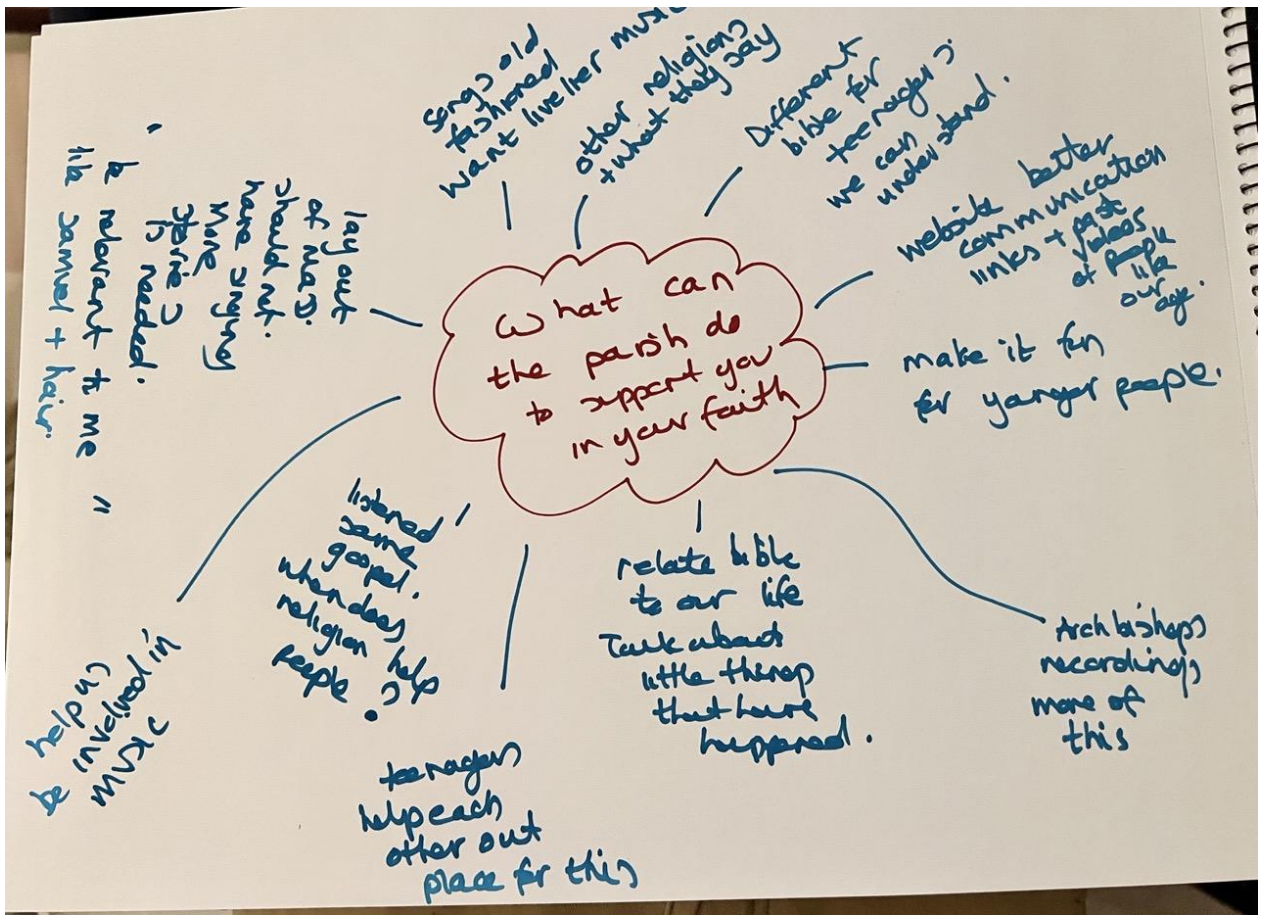 What can
the parish do
to support you
in your faith
songs old
fashioned
want livelier music
other religions
+ what they say
Different
bible for
teenagers
we can
understand.
website better
communication
links + past
videos
of people
like
our
age.
make it fun
for younger people.
Archbishops
recordings
more of
this
relate bible
to our life
Talk about
little things
that have
happened.
teenagers
help each
other out
place for this
listened
same
gospel.
when does
religion help
people ?
help us
be involved in
music
lay out
of mass.
should not.
have singing
More
stories
is needed.
" be relevant to me "
like samuel + hair.